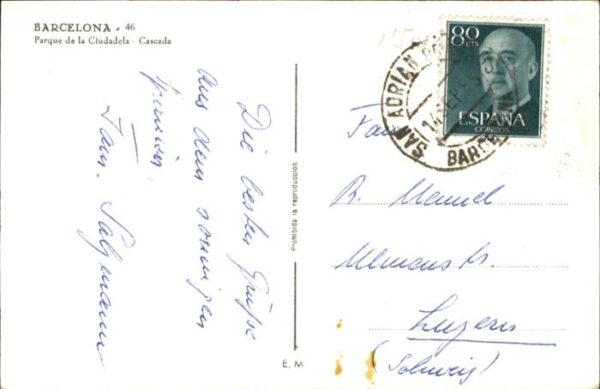 BARCELONA - 46
Parque de la Ciudadela - Cascada
Die besten Grüße
aus dem sonnigen
Spanien,
Fam. Salzmann
Prohibida la reproducción
E. M
80 CTS
ESPAÑA
CORREOS
SAN ADRIAN DE
BARCE
Fam
R.
Luzern
(Schweiz)